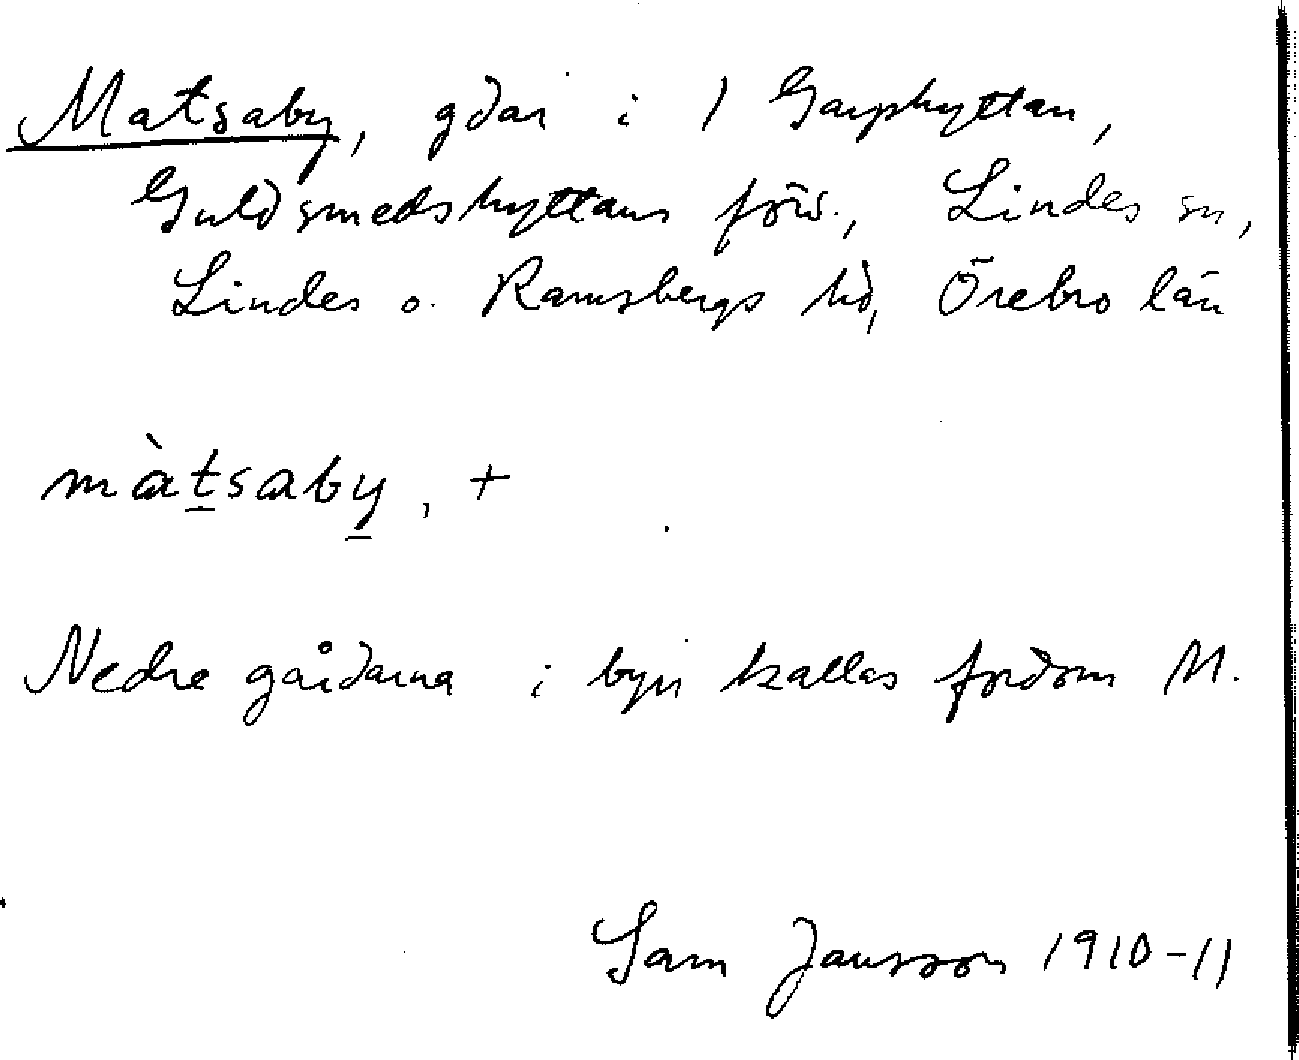 Matsaby, gdar i 1 Garphyttan,
Guldsmedshyttans förs., Lindes sn,
Lindes o. Ramsbergs hd, Örebro län
màtsaby, +
Nedre gårdarna i byn kallas fordom M.
Sam Jansson 1910-11